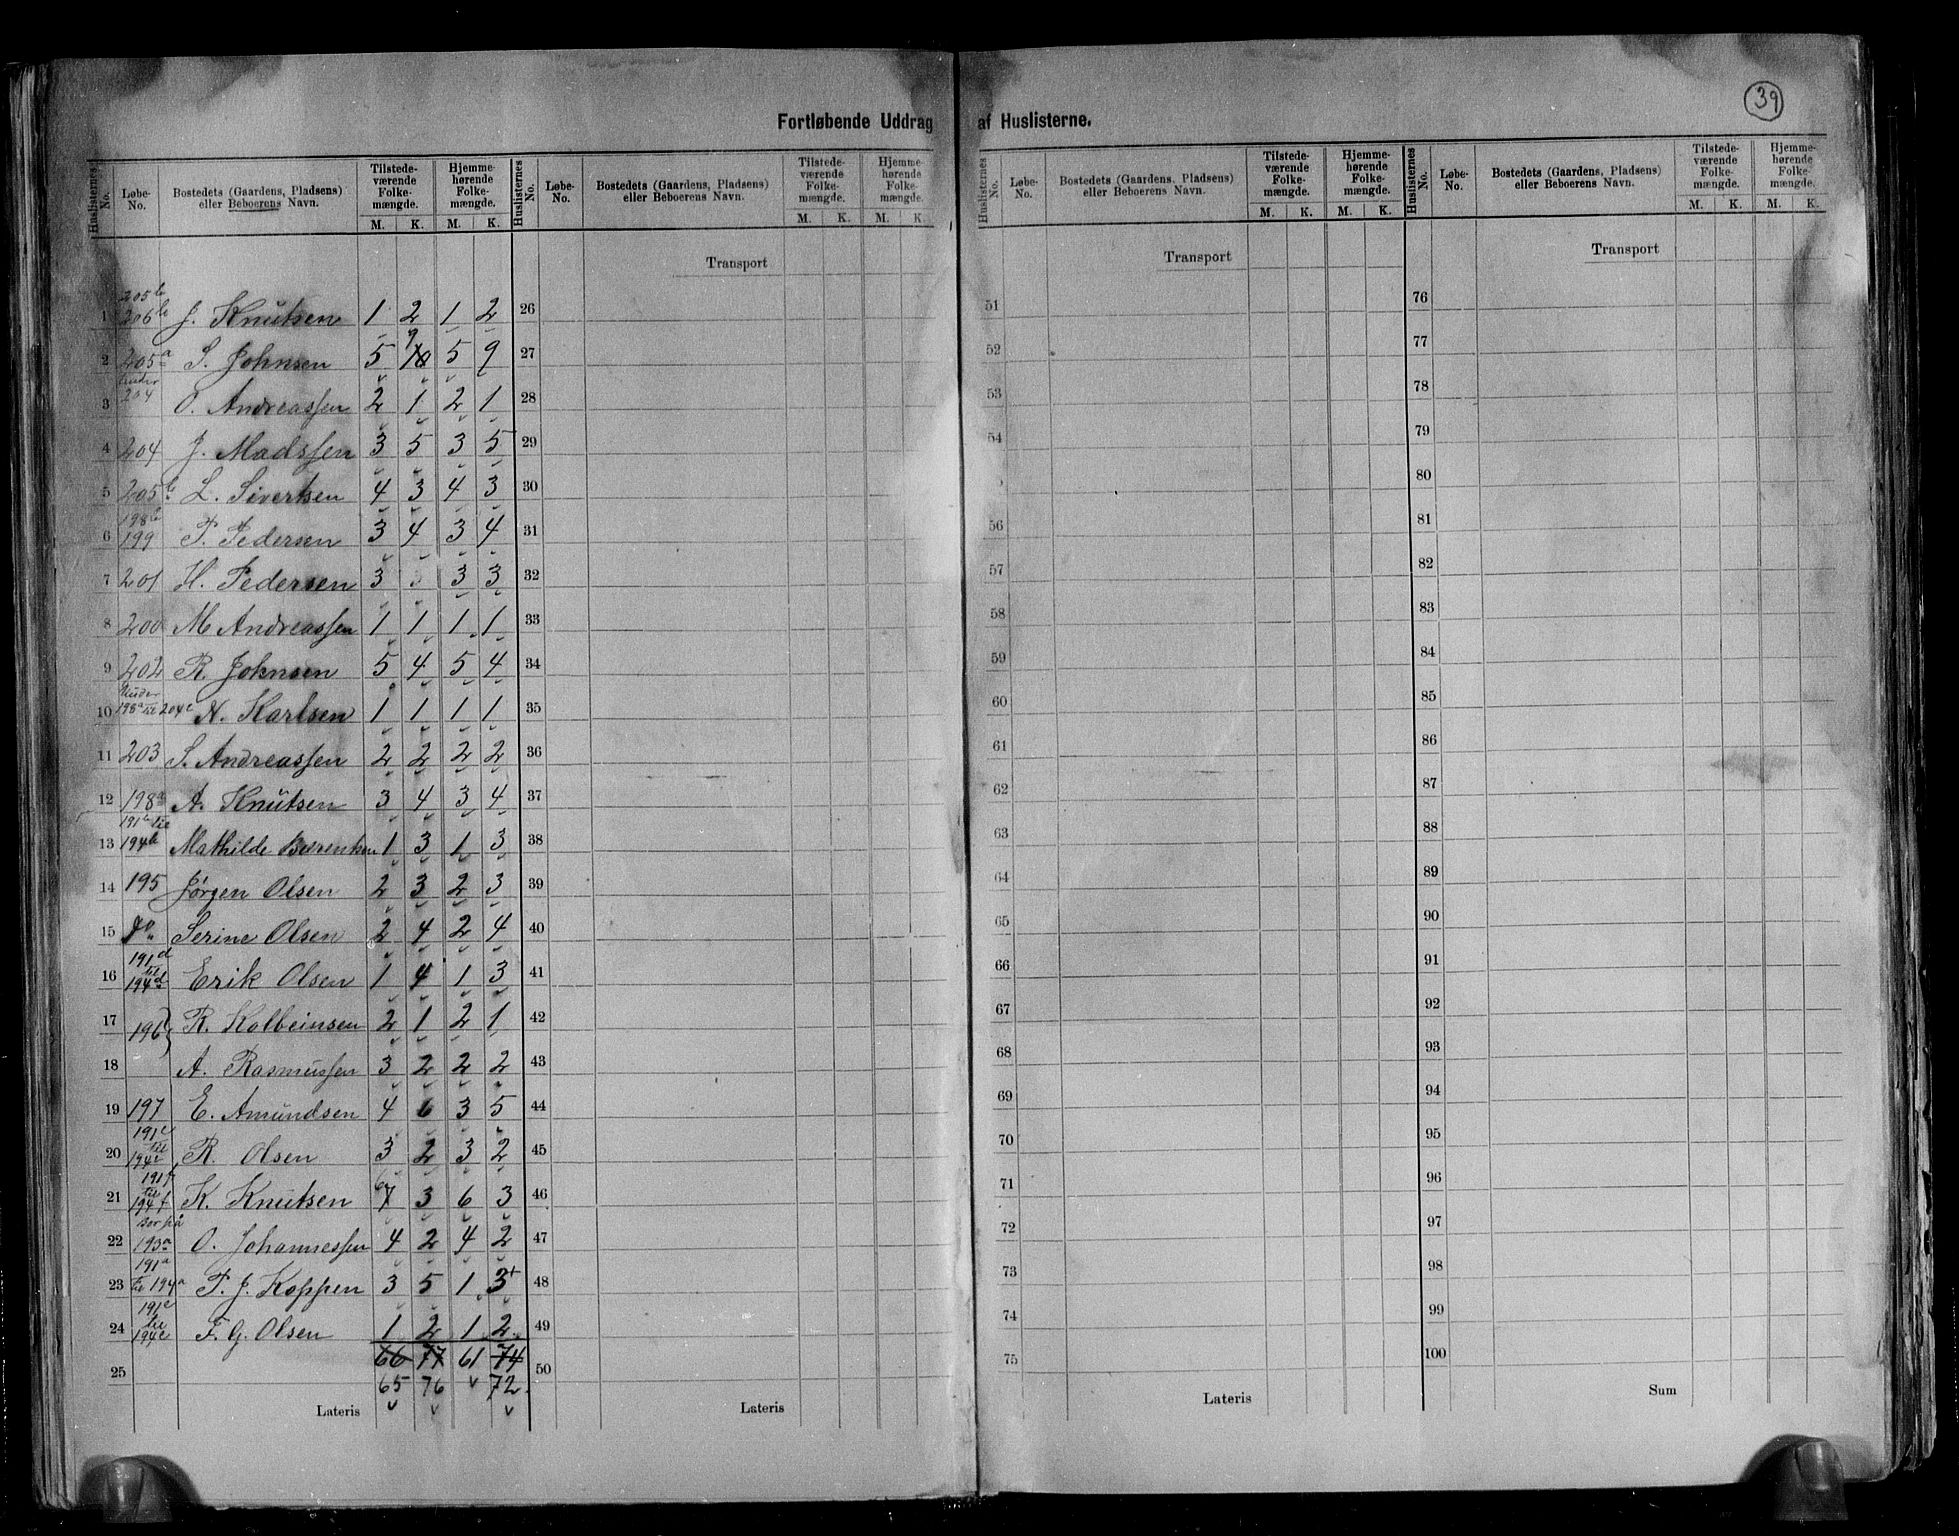 39
Fortløbende Uddrag af Huslisterne.
Huslisternes No. Løbe-No. Bostedets (Gaardens, Pladsens) eller Beboerens Navn. Tilstede-værende Folke-mængde. M. K. Hjemme-hørende Folke-mængde. M. K.
Huslisternes No. Løbe-No. Bostedets (Gaardens, Pladsens) eller Beboerens Navn. Tilstede-værende Folke-mængde. M. K. Hjemme-hørende Folke-mængde. M. K.
Huslisternes No. Løbe-No. Bostedets (Gaardens, Pladsens) eller Beboerens Navn. Tilstede-værende Folke-mængde. M. K. Hjemme-hørende Folke-mængde. M. K.
Huslisternes No. Løbe-No. Bostedets (Gaardens, Pladsens) eller Beboerens Navn. Tilstede-værende Folke-mængde. M. K. Hjemme-hørende Folke-mængde. M. K.
Transport Transport Transport
1 205b 206b J. Knutsen 1 2 1 2 26 51 76
2 205a S. Johnsen 5 10 9 5 9 27 52 77
3 under 204 O. Andreassen 2 1 2 1 28 53 78
4 204 J. Madssen 3 5 3 5 29 54 79
5 205b L. Sivertsen 4 3 4 3 30 80
6 198b 199 P. Pedersen 3 4 3 4 31 56 81
7 201 H. Pedersen 3 3 3 3 32 57 82
8 200 M Andreassen 1 1 1 1 33 58 83
9 202 R. Johnsen 5 4 5 4 34 59 84
10 Under 198a til 204c N. Karlsen 1 1 1 1 35 60 85
11 203 S. Andreassen 2 2 2 2 36 61 86
12 198a A. Knutsen 3 4 3 4 37 62 87
13 191b til 194b Mathilde 1 3 1 3 38 63 88
14 195 Jørgen Olsen 2 3 2 3 39 64 89
15 do Serine Olsen 2 4 2 4 40 65 90
16 191d til 194d Erik Olsen 1 4 1 3 41 66 91
17 196 R. Kolbeinsen 2 1 2 1 42 67 92
18 A. Rasmussen 3 2 2 2 43 68 93
19 197 E. Amundsen 4 6 3 5 44 69 94
20 191c til 194c R. Olsen 3 2 3 2 45 70 95
21 191f til 194f K. Knutsen 7 6 3 6 3 46 71 96
22 Bor på 193a O. Johannessen 4 2 4 2 47 72 97
23 191a til 194a P. J. Koppen 3 5 1 3+ 48 73 98
24 191e til 194e F. G. Olsen 1 2 1 2 49 74 99
66 77 61 74
25 65 76 72 50 75 100
Lateris Lateris Lateris Sum